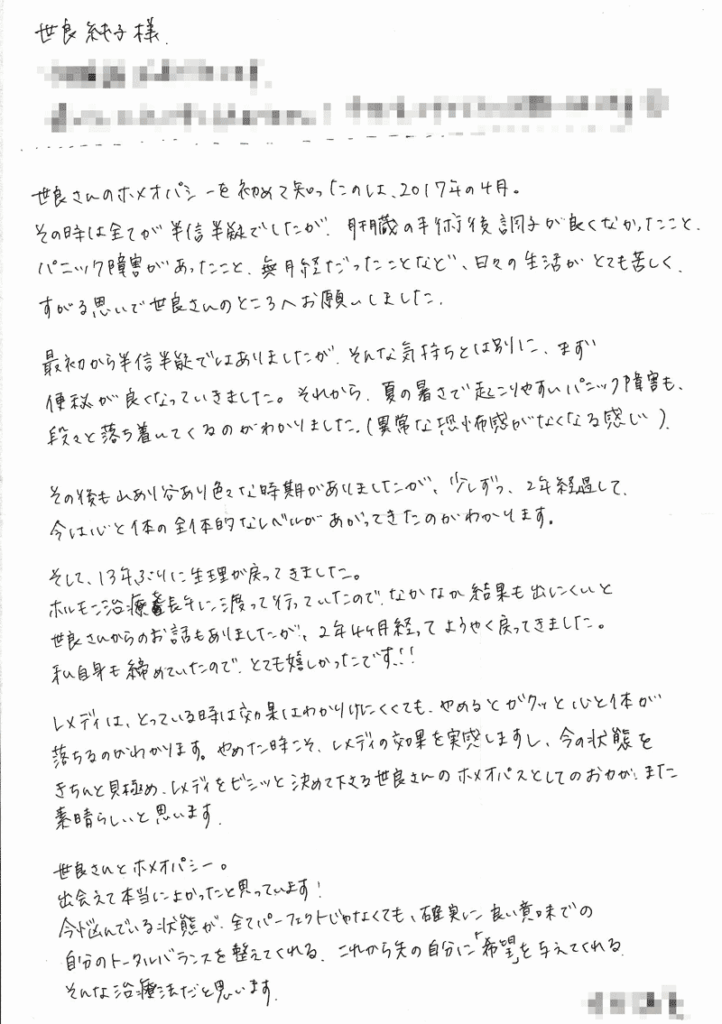 世良純子様
世良さんのホメオパシーを初めて知ったのは、2017年の4月。
その時は全てが半信半疑でしたが、肝臓の手術後調子が良くなかったこと、
パニック障害があったこと、無月経だったことなど、日々の生活がとても苦しく、
すがる思いで世良さんのところへお願いしました。
最初から半信半疑ではありましたが、そんな気持ちとは別に、まず
便秘が良くなっていきました。それから、夏の暑さで起こりやすいパニック障害も、
段々と落ち着いてくるのがわかりました。(異常な恐怖感がなくなる感じ)
その後も山あり谷あり色々な時期がありましたが、少しずつ、2年経過して、
今は心と体の全体的なレベルがあがってきたのがわかります。
そして、13年ぶりに生理が戻ってきました。
ホルモン治療長年に渡って行っていたので、なかなか結果も出にくいと
世良さんからのお話もありましたが、2年4ヶ月経ってようやく戻ってきました。
私自身も締めていたので、とても嬉しかったです!!
レメディは、とっている時は効果はわかりにくくても、やめるとガクッと心と体が
落ちるのがわかります。やめた時こそ、レメディの効果を実感しますし、今の状態を
きちんと見極め、レメディをビシッと決めて下さる世良さんのホメオパスとしてのお力が、また
素晴らしいと思います。
世良さんとホメオパシー。
出会えて本当によかったと思っています!
今悩んでいる状態が、全てパーフェクトじゃなくても、確実に良い意味での
自分のトータルバランスを整えてくれる、これから先の自分に「希望」を与えてくれる
そんな治療法だと思います。